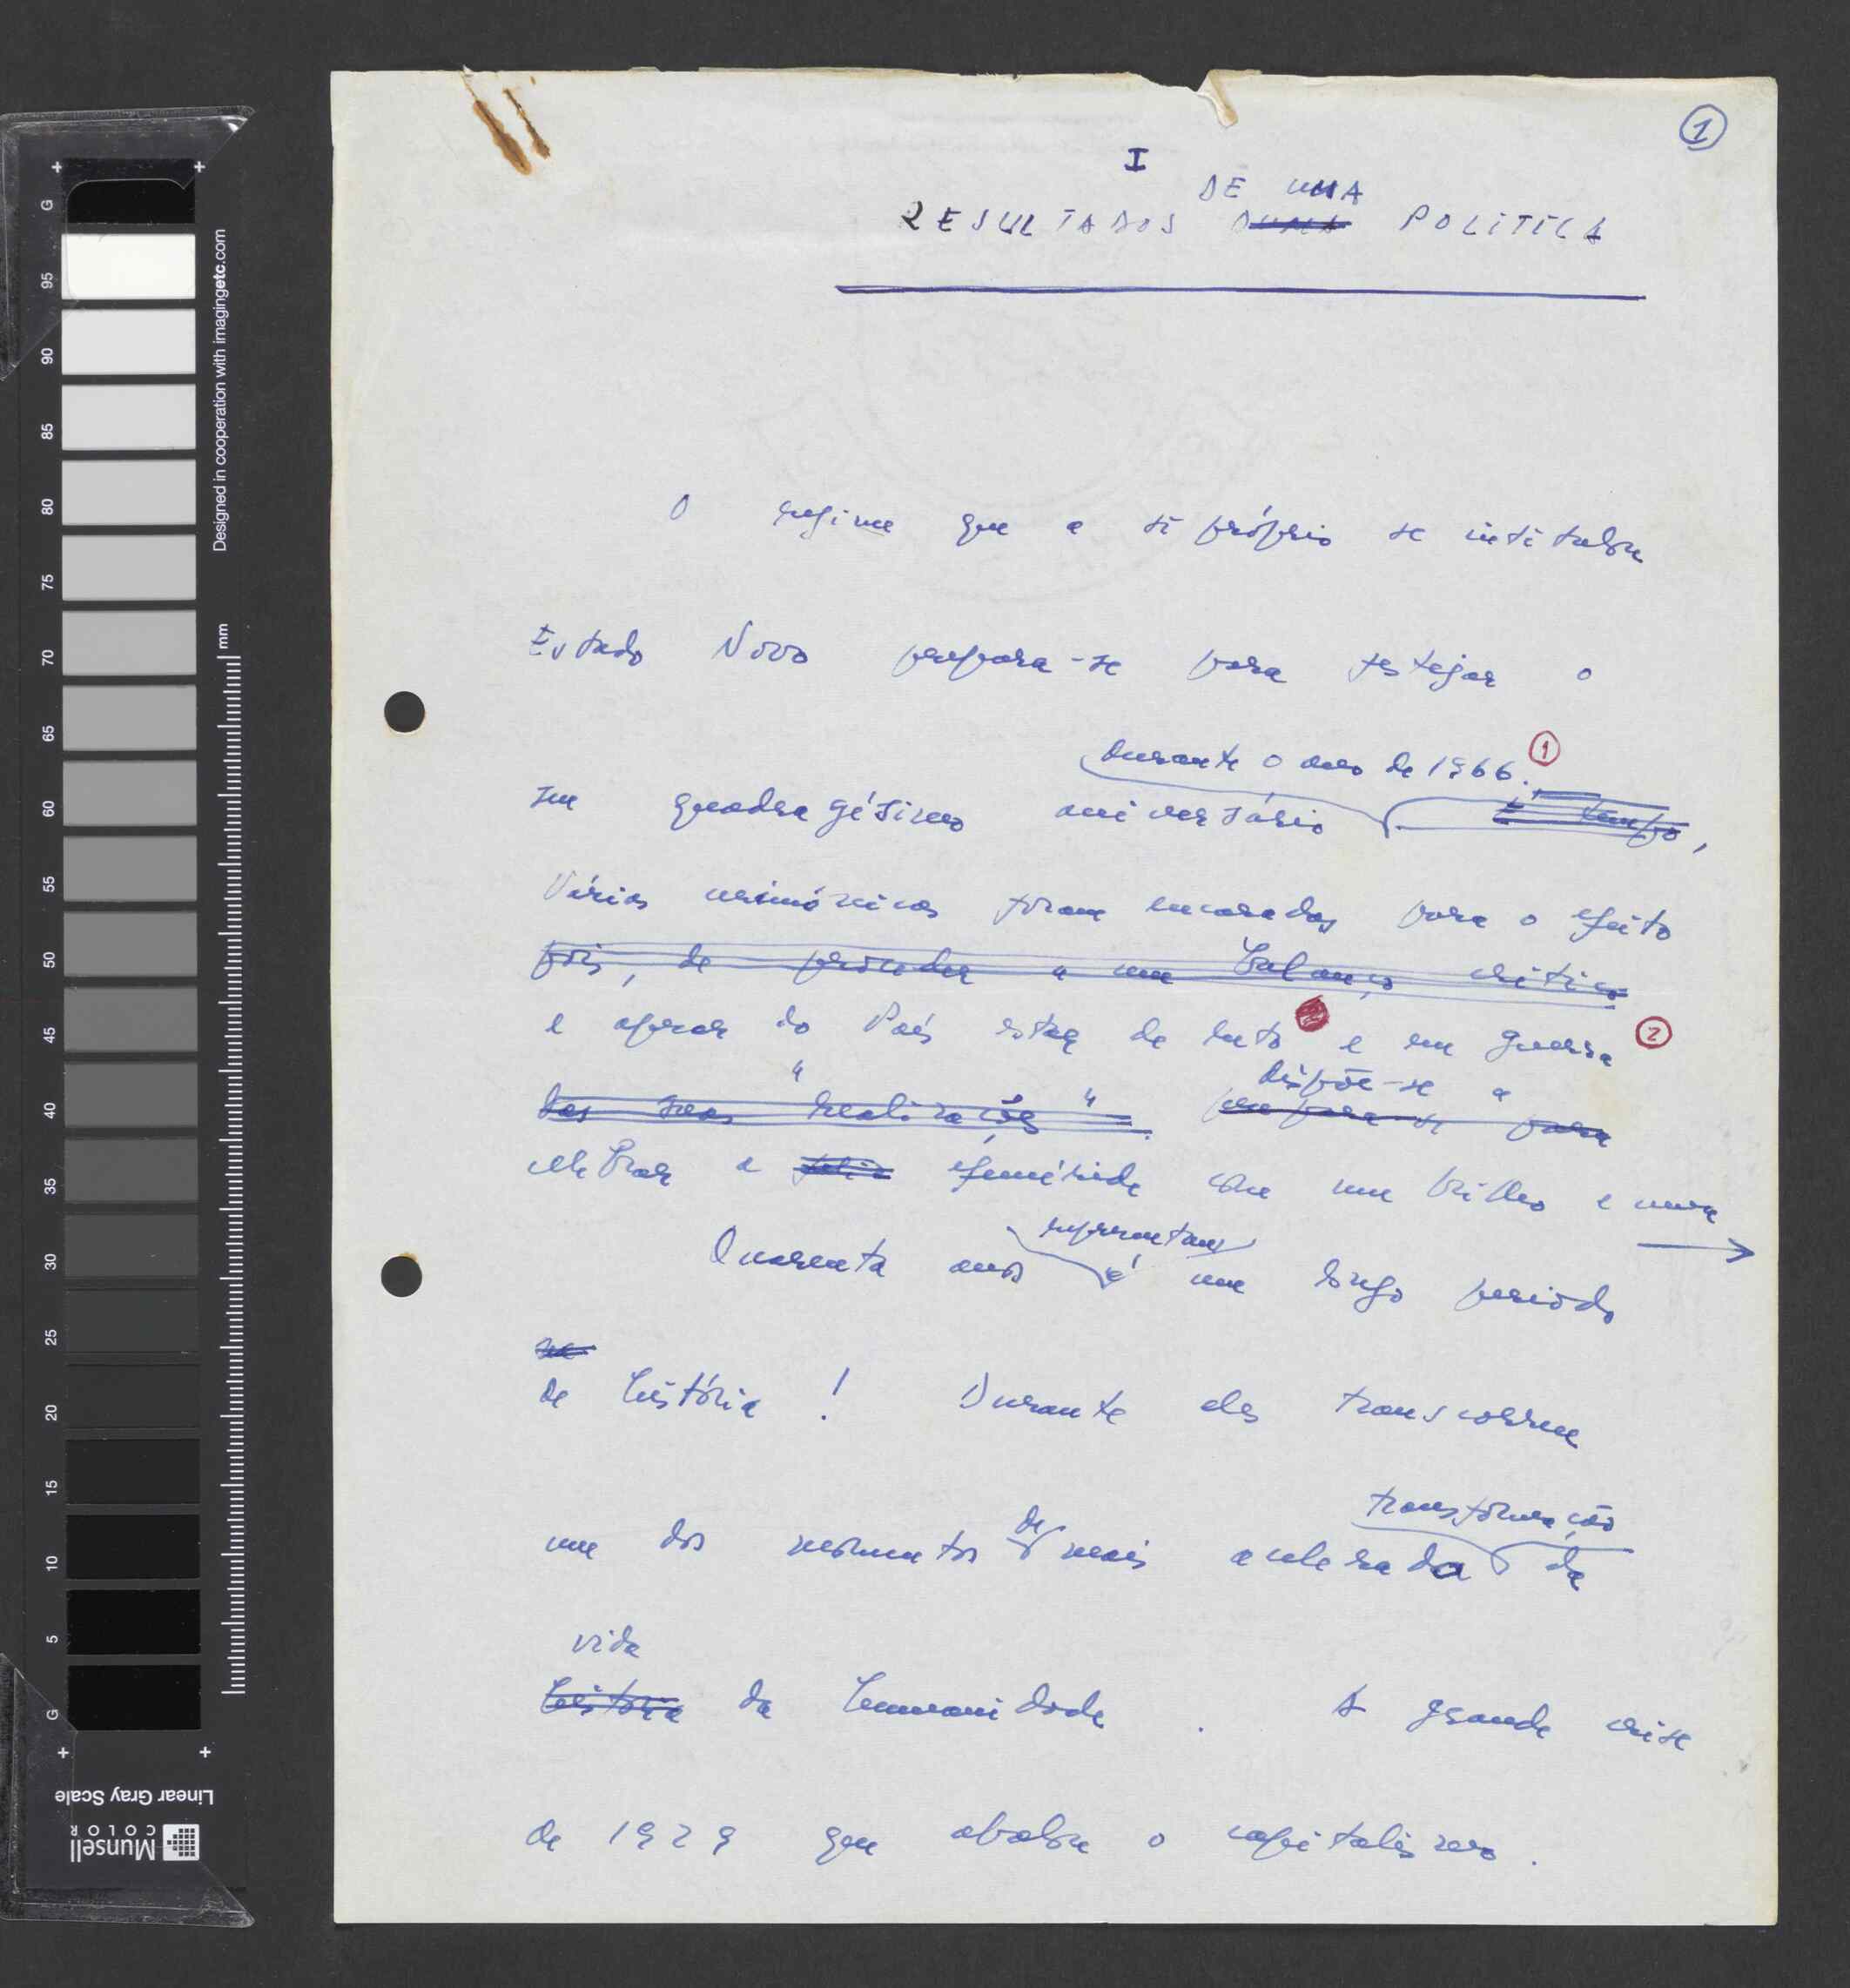 1
I
DE UMA
RESULTADOS DUMA POLITICA
O regime que a si próprio se intitulou
Estado Novo prepara-se para festejar o
durante o ano de 1966. 1
seu quadragésimo aniversário tempo,
Várias cerimónias foram encaradas para o efeito
pois, de proceder a um balanço crítico
e apesar do País estar de luto e em guerra 2
dispõe-se a
das suas "realizações" prepara-se para
celebrar a efeméride com um brilho e uma
representam
Quarenta anos é um longo periodo
de história! Durante eles transcorreu
transformação
de
um dos momentos mais acelerada da
vida
história da humanidade. A grande crise
de 1929 que abalou o capitalismo.
G
95
90
85
80
75
70
65
60
55
50
45
40
35
30
25
20
15
10
5
G
Designed in cooperation with imagingetc.com
mm
Linear Gray Scale
Munsell
COLOR